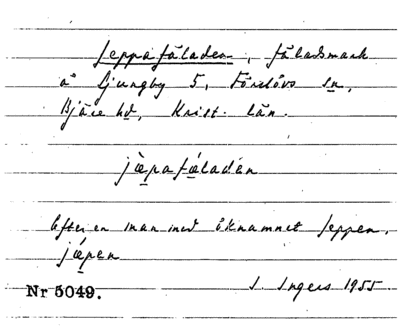 Jeppafäladen, fäladsmark
å Ljungby 5, Förslövs sn,
Bjäre hd, Krist. län.
jæ̀pafǽladén
Efter en man med öknamnet Jeppen,
jǽpen
I Ingers 1955
Nr 5049.